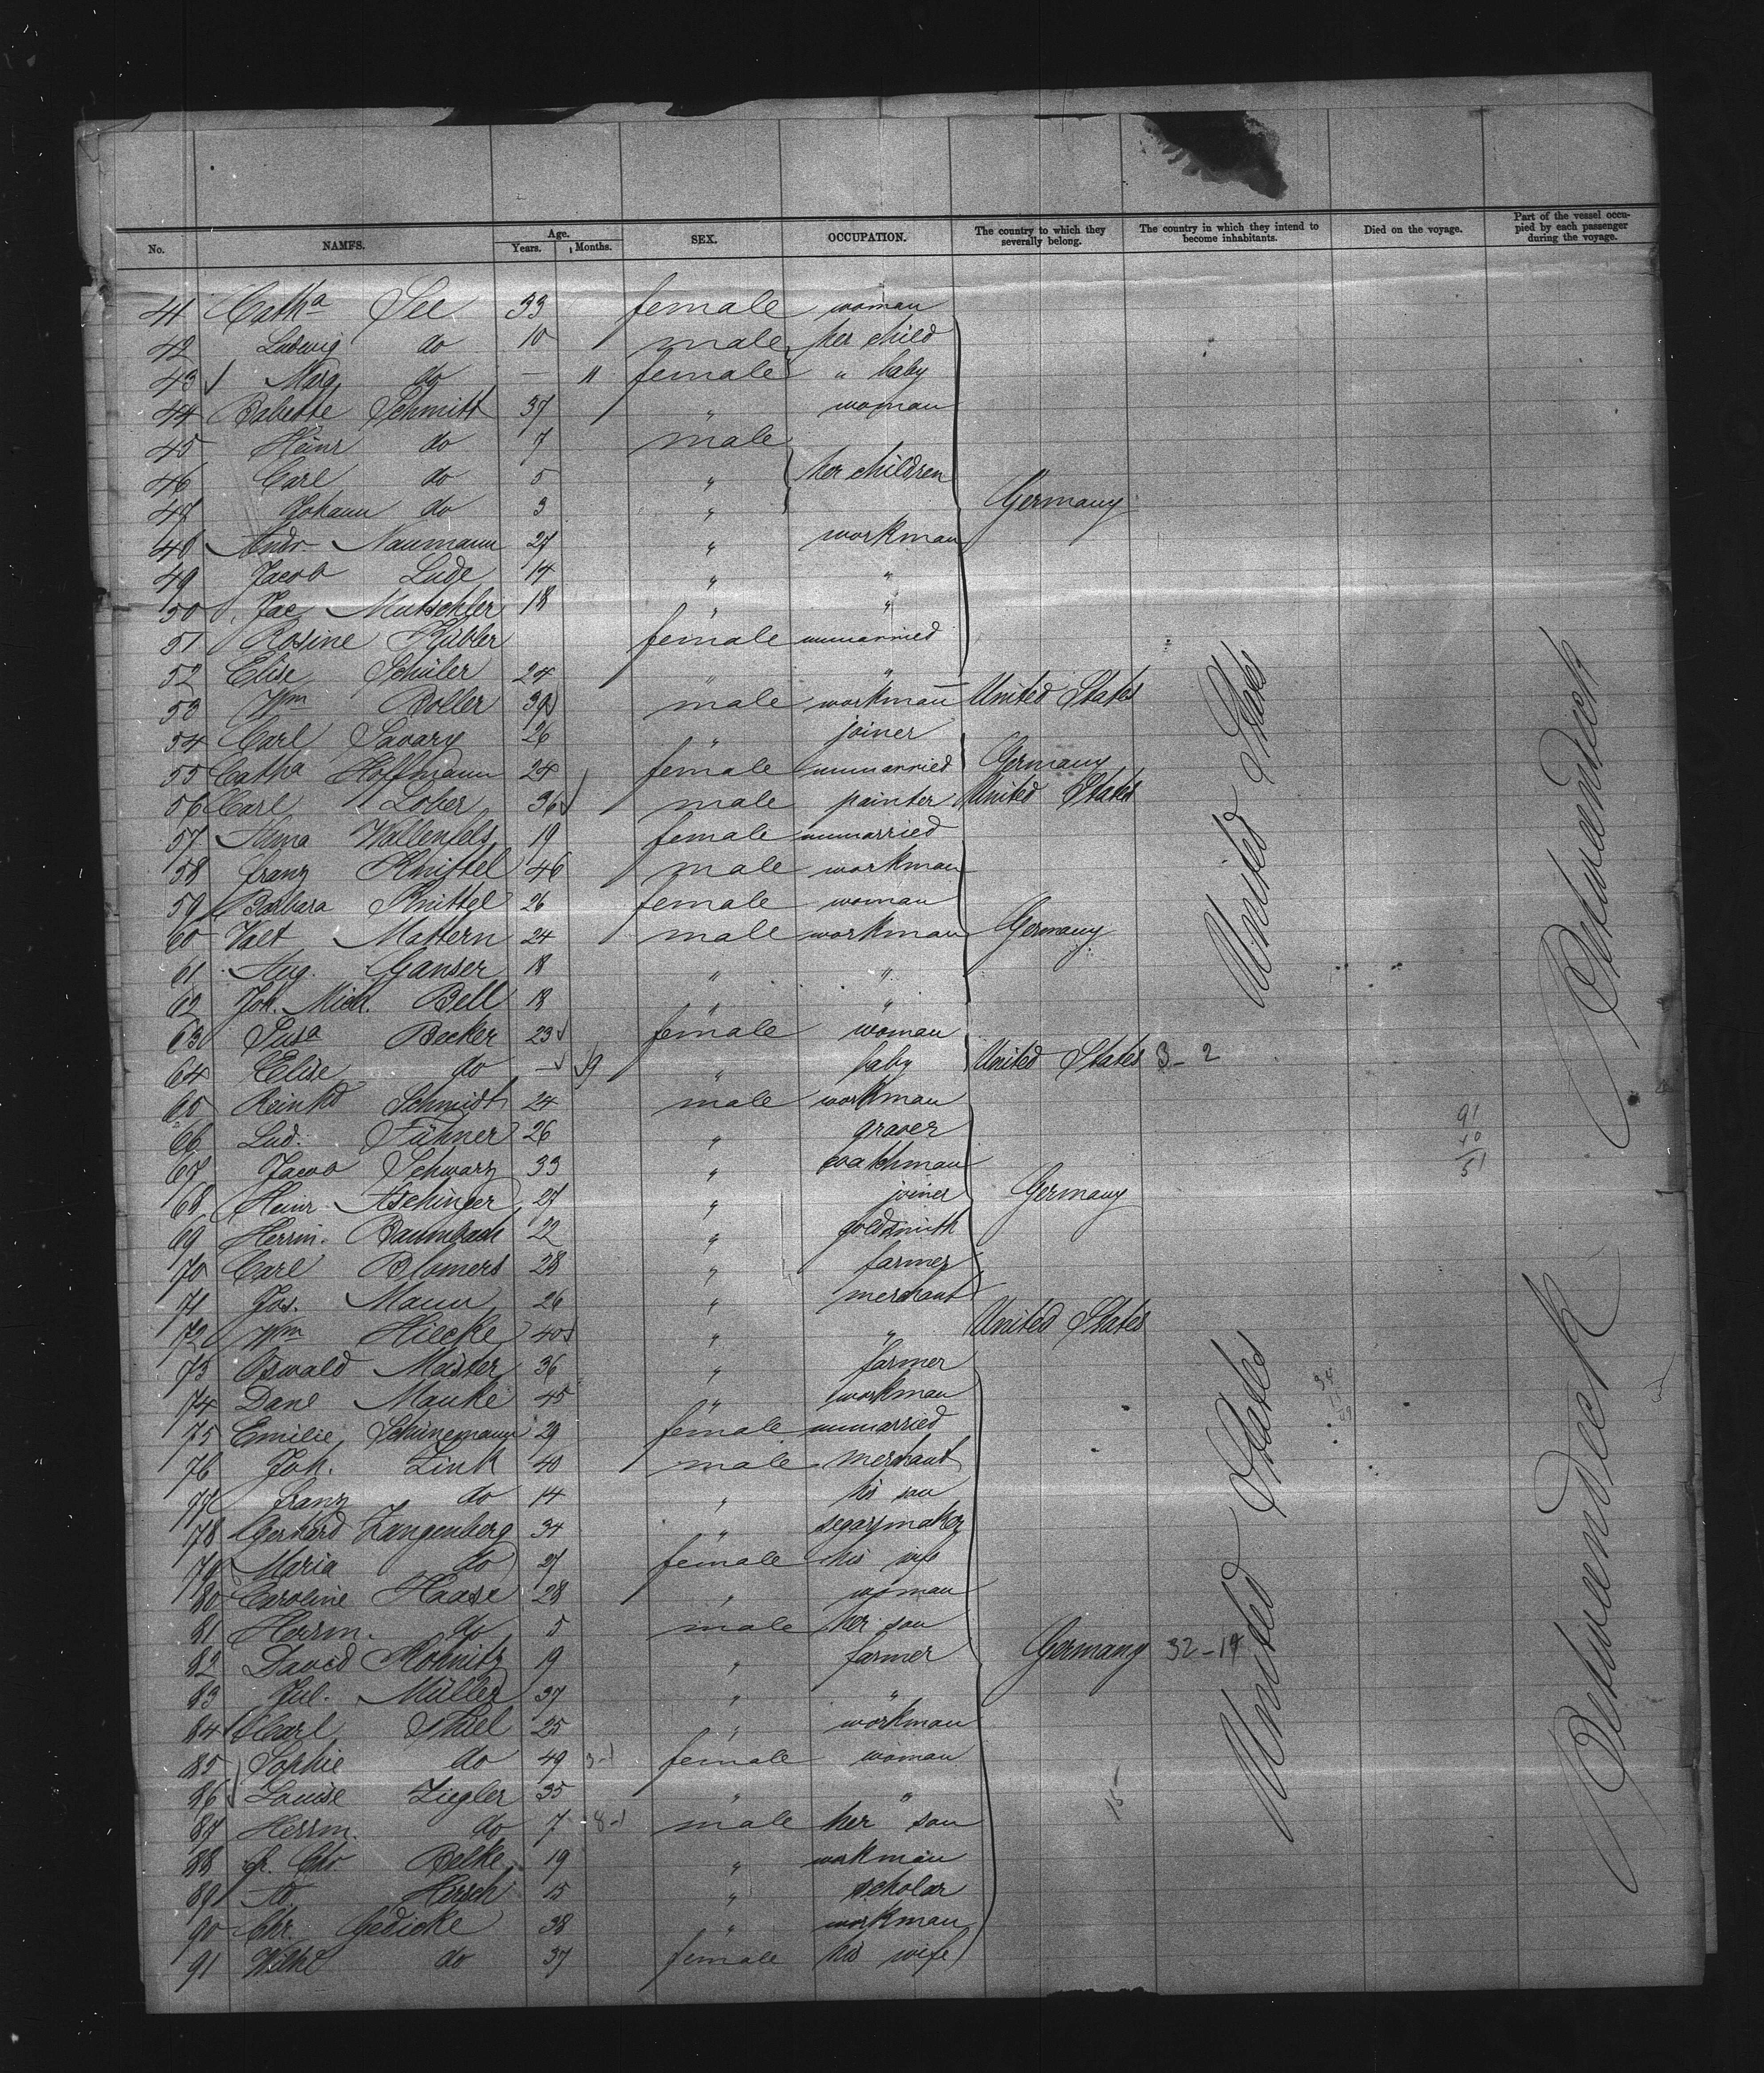 No. NAMES. Age. Years. Months. SEX. OCCUPATION. The country to which they severally belong. The country in which they intend to become inhabitants. Died on the voyage. Part of the vessel occupied by each passenger during the voyage.
41 Catha See 33 female woman
42 Ludwig do 10 male her child
43 Marg do — 11 female " baby
44 Babette Schmitt 37 " woman
45 Heinr do 7 male
46 Carl do 5 " her children
47 Johann do 3 " Germany
48 Andr Naumann 27 " workman
49 Jacob Lude 14 " "
50 Jac Mutschler 18 " "
51 Rosine Kübler female unmarried
52 Elise Schüler 24 " "
53 Wm Boller 39 male workman United States
54 Carl Savary 26 " joiner
55 Catha Hoffmann 24 female unmarried Germany
56 Carl Lober 36 male painter United States
57 Anna Wallenfels 19 female unmarried
58 Franz Knittel 46 male workman
59 Barbara Knittel 26 female woman
60 Valt Mattern 24 male workman Germany
61 Aug. Ganser 18 " "
62 Joh. Mich. Bell 18 " "
63 Susa Becker 23 female woman
64 Elise do — 9 " baby United States 3-2
65 Reinhd Schmidt 24 male workman
66 Lud. Fühner 26 " graver
67 Jacob Schwarz 33 " watchman
68 Heinr Aschinger 27 " joiner Germany
69 Herrm. Baumbach 22 " goldsmith
70 Carl Blomers 28 " farmer
71 Jos. Mann 26 " merchant
72 Wm Hiecke 40 " " United States
73 Oswald Maister 36 " farmer
74 Danl Manke 45 " workman
75 Emilie Schünemann 29 female unmarried
76 Joh. Link 40 male merchant
77 Franz do 14 " his son
78 Gerhard Langenberg 34 " segarsmaker
79 Maria do 27 female his wife
80 Caroline Haase 28 " woman
81 Herrm. do 5 male her son
82 David Rohnitz 19 " farmer Germany 32-14
83 Jul. Müller 37 " "
84 Carl Thiel 25 " workman
85 Sophie do 49 female woman
86 Louise Ziegler 35 " "
87 Herrm. do 7 male her son
88 Chr Belke 19 " workman
89 Hirsch 15 " scholar
90 Chr. Gedicke 38 " workman
91 Wilhe do 37 female his wife
United States
United States
Betweendeck
Betweendeck
91
40
51
15